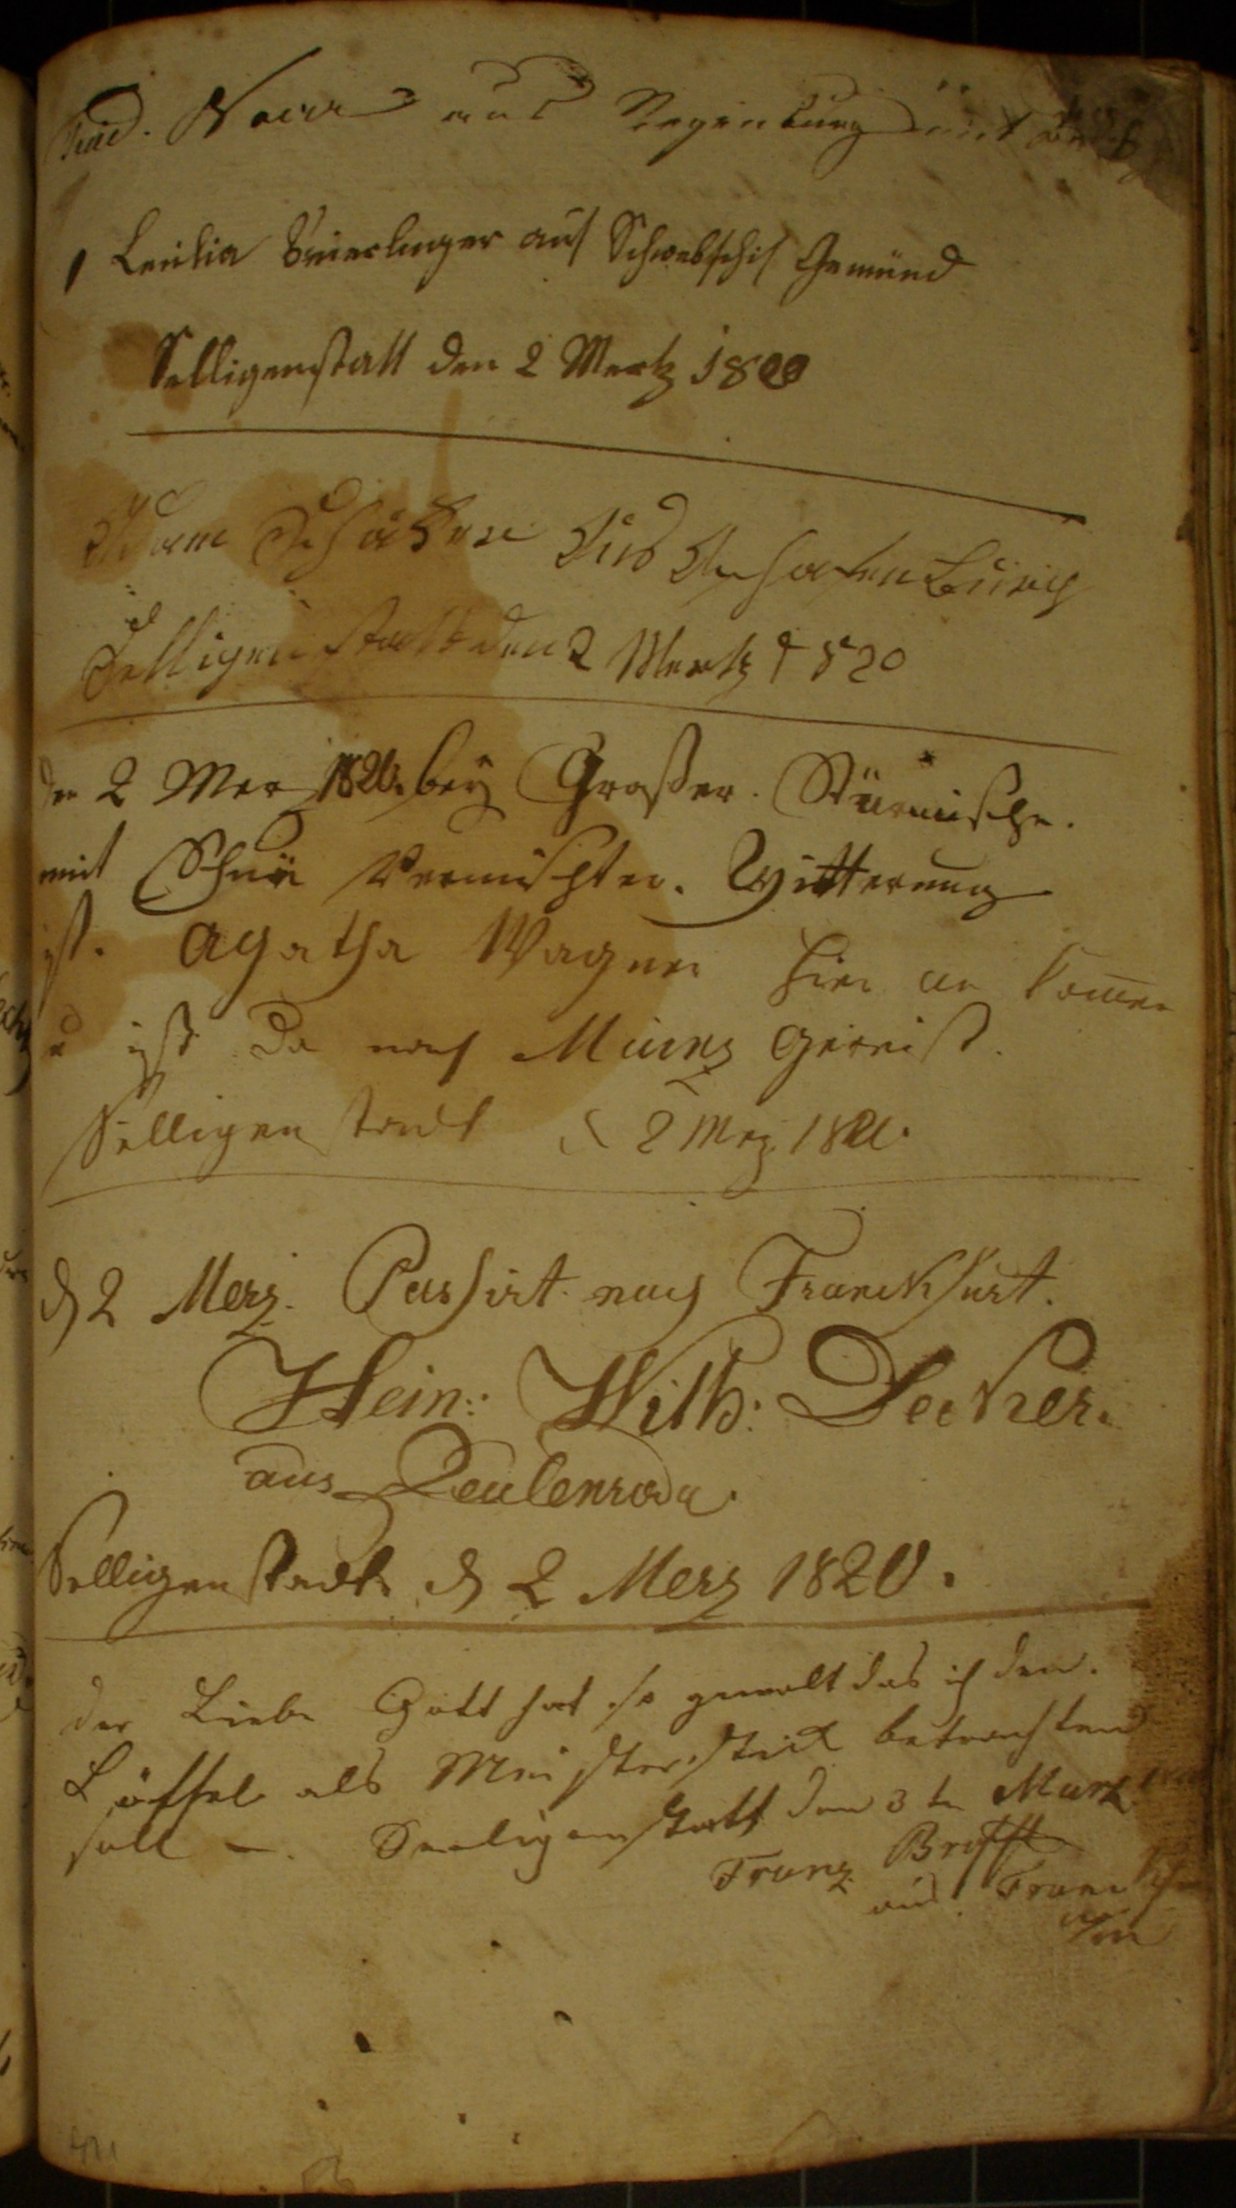 aus Regensburg mit
Cecilia aus Schwebschis Gemünd
Selligenstatt den 2 Mertz 1820
Adam Schäffer Aus Aschafenburg
Selligenstatt den 2 Mertz 1820
den 2 Merz 1820. bey Großer. Stürmische.
mit Schnee Vermischter. Witterung
ist. Agatha Wagner hier an komen
u ist da nach Mainz gereist.
Selligenstadt d 2 Merz 1820.
d 2 Merz. Passirt nach Franckfurt.
Hein: Wilh: Decker.
aus Zeulenroda.
Selligenstadt. d 2 Merz 1820.
der Liebe Gott hat so gewolt das ich den.
Löffel als Meisterstück betrachten
soll –. Seeligenstatt den 3ten Marz
Franz
aus
a/m